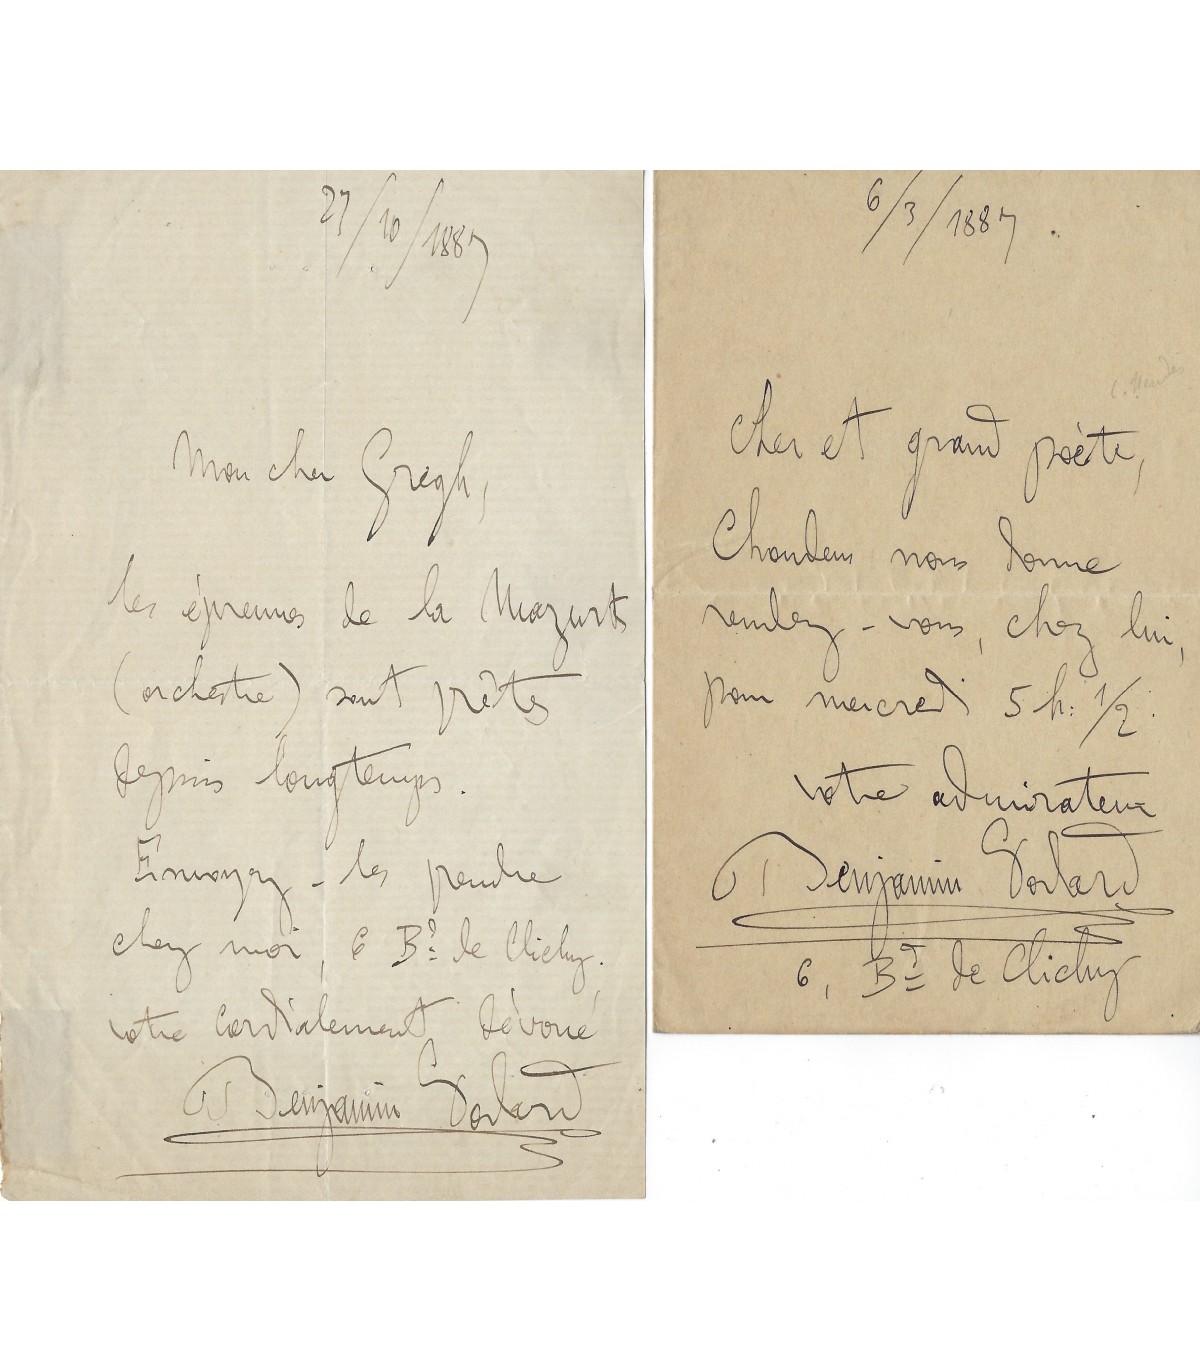 27/10/1887
Mon cher Gregh,
les épreuves de la Mazurk
(orchestre) sont prêtes
depuis longtemps.
Envoyez-les prendre
chez moi, 6 Bd de Clichy.
votre cordialement dévoué
Benjamin Godard
6/3/1887.
C. Mendès
Cher et grand poète,
Choudens nous donne
rendez-vous, chez lui,
pour mercredi 5 h: 1/2.
votre admirateur
Benjamin Godard
6, Bd de Clichy